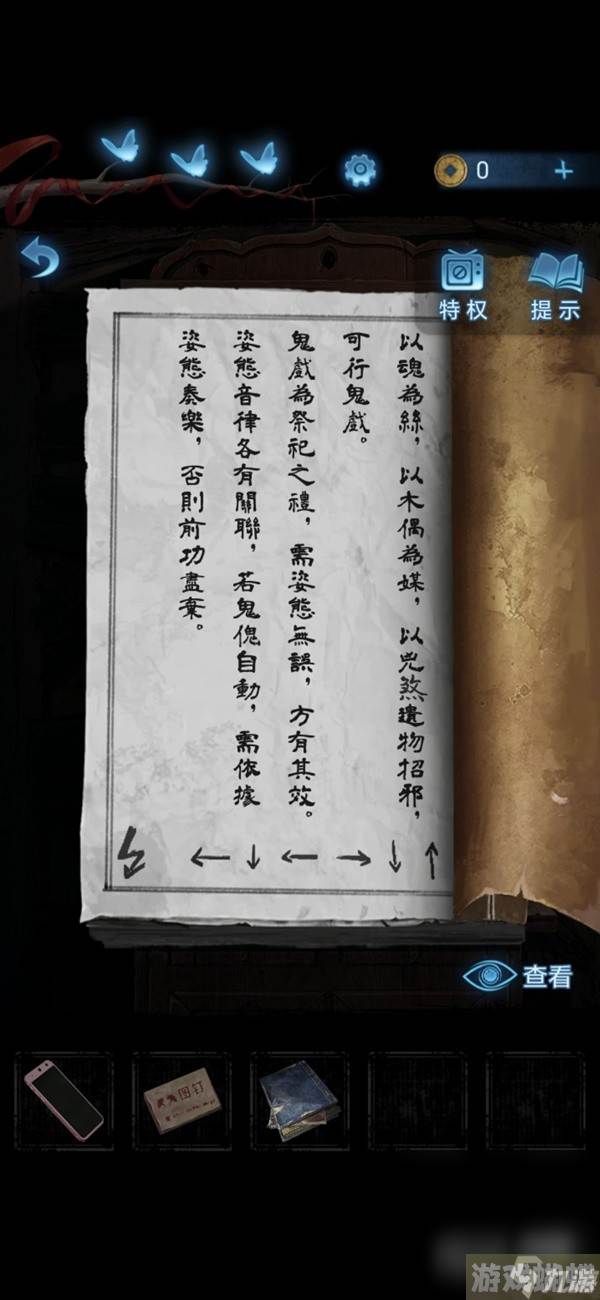 0
特权
提示
以魂為絲，以木偶為媒，以兇煞遺物招邪，
可行鬼戲。
鬼戲為祭祀之禮，需姿態無誤，方有其效。
姿態音律各有關聯，若鬼傀自動，需依據
姿態奏樂，否則前功盡棄。
← ↓ ← → ↓ ↑
查看
图钉
游戏